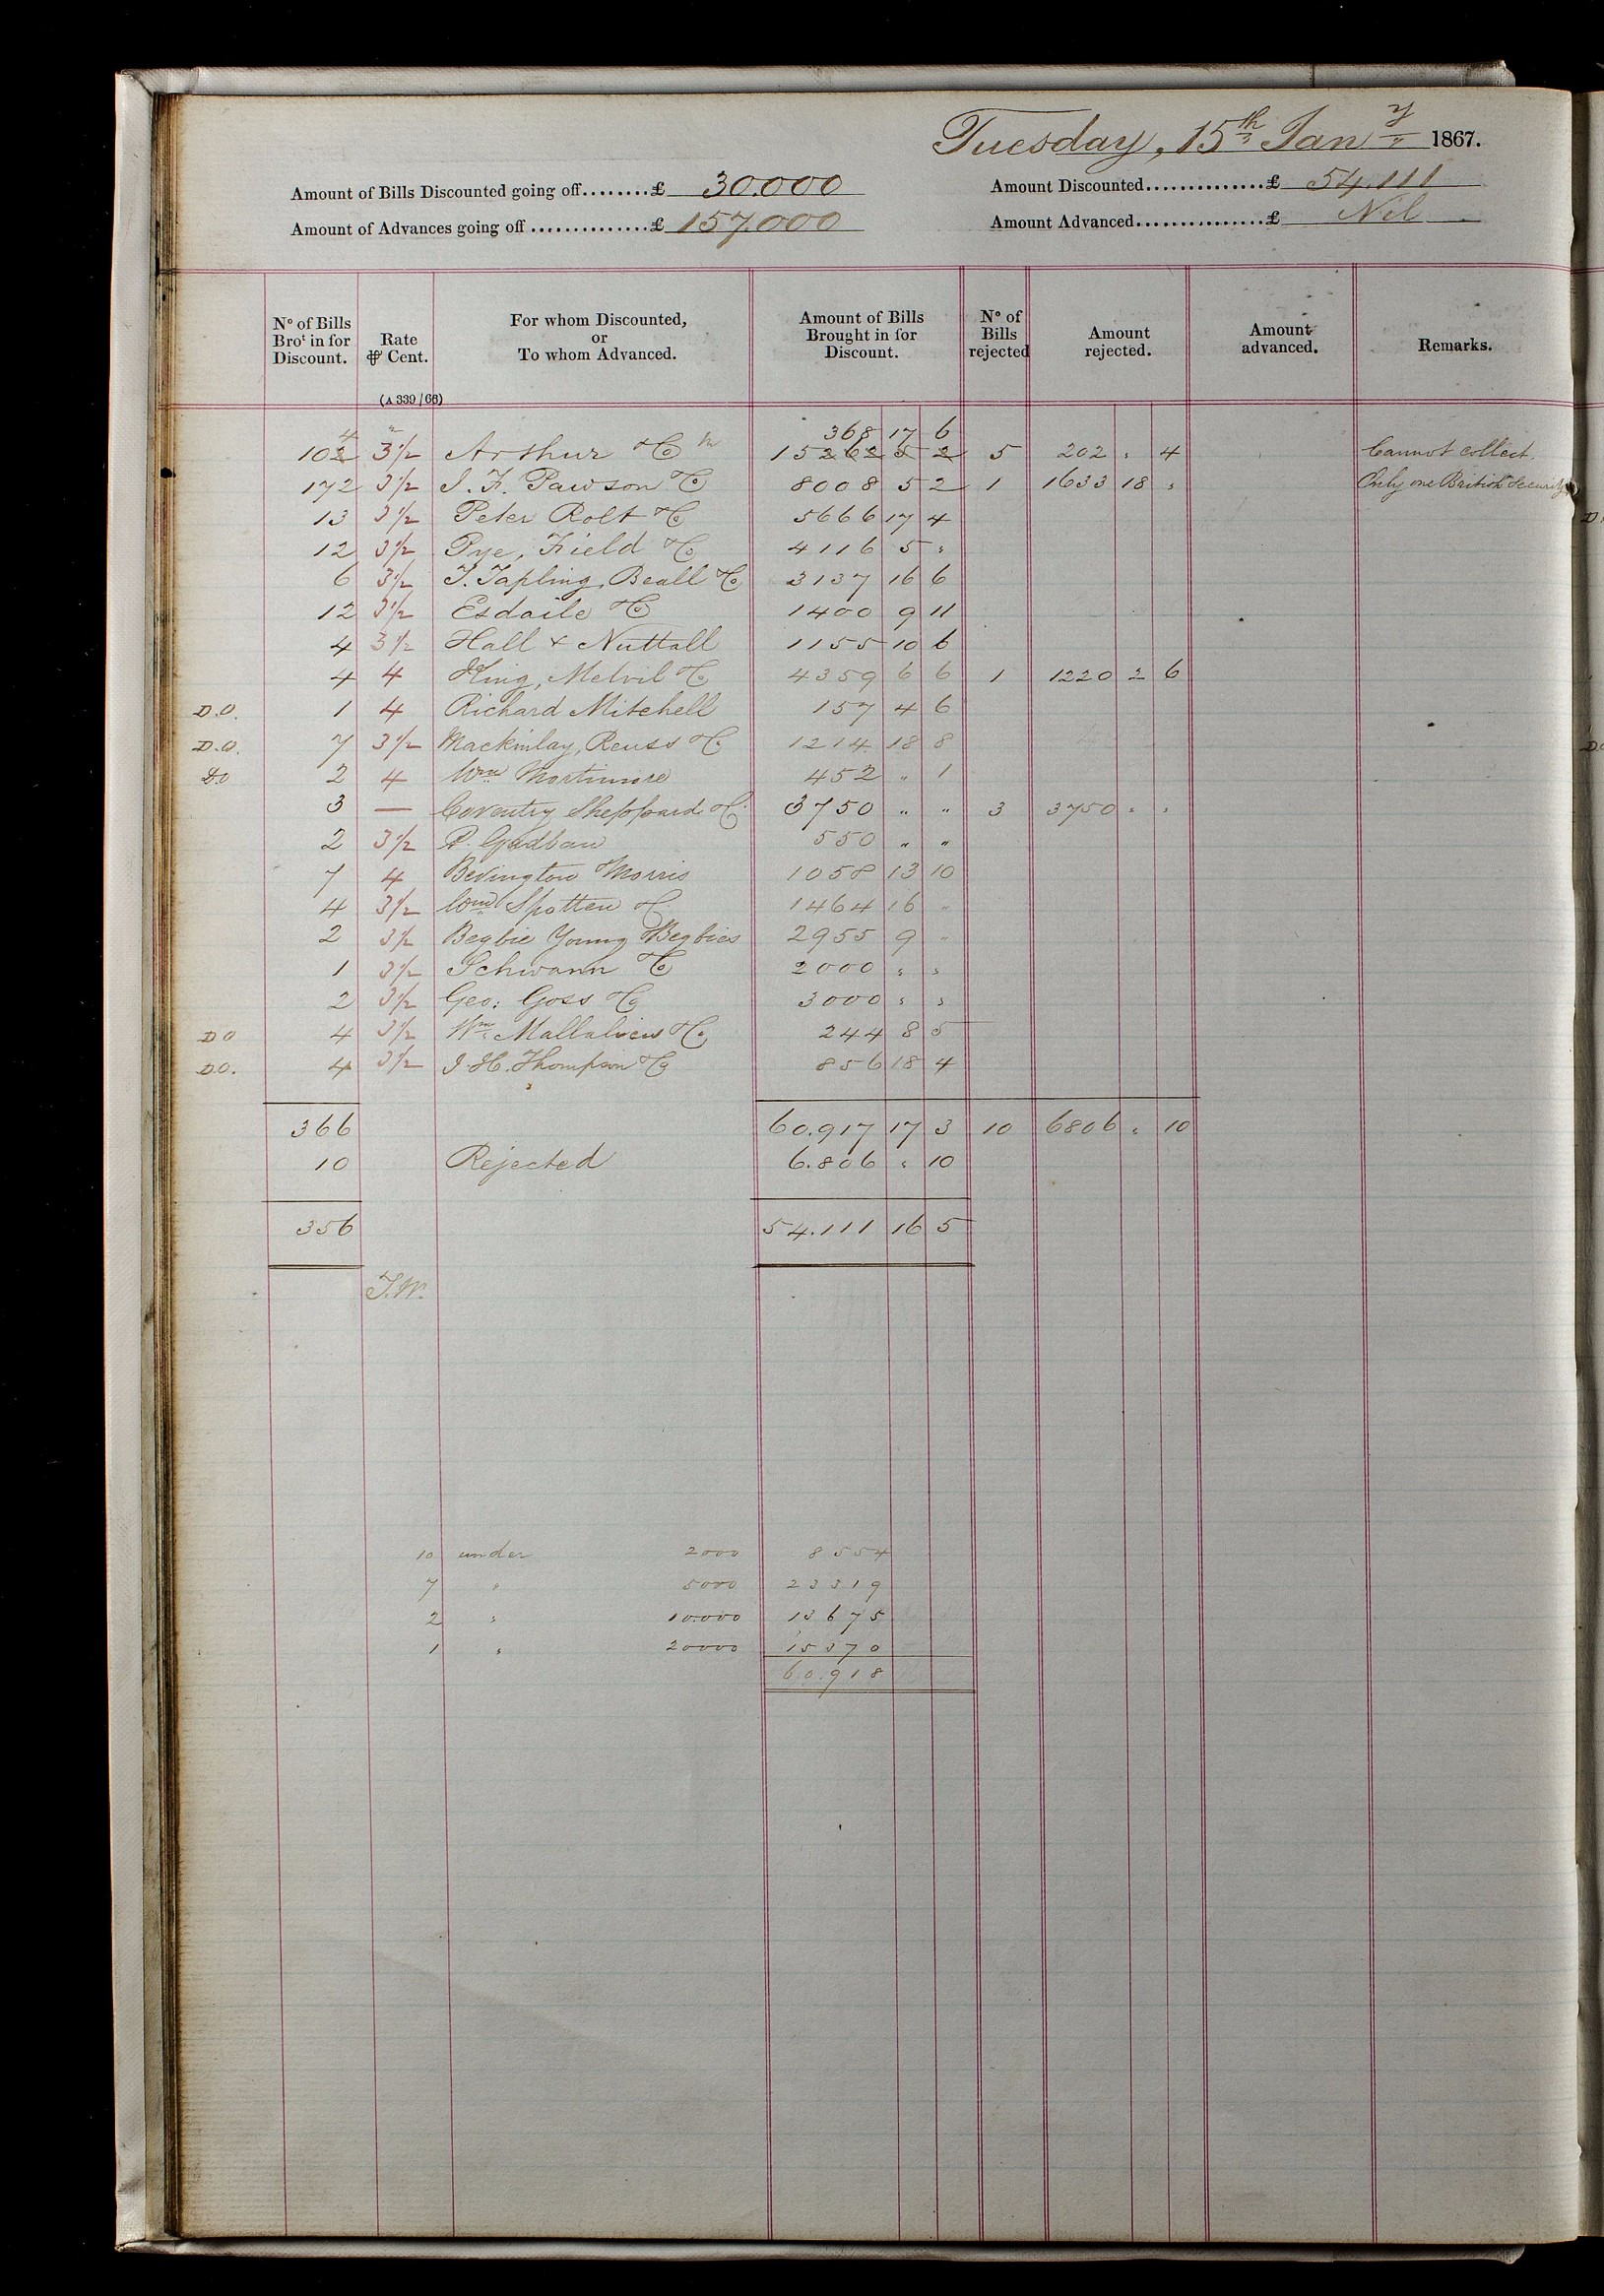 Tuesday, 15th Jany 1867.
Amount of Bills Discounted going off........£ 30.000 Amount Discounted...............£ 54.111
Amount of Advances going off ...............£ 157.000 Amount Advanced.................£ Nil
No of Bills Brot in for Discount. Rate ⅌ Cent. For whom Discounted, or To whom Advanced. Amount of Bills Brought in for Discount. No of Bills rejected Amount rejected. Amount advanced. Remarks.
(A 339/66)
4 368 17 6
102 3½ Arthur & Co 15262 5 2 5 202 " 4 Cannot collect.
172 3½ J. F. Pawson & Co 8008 5 2 1 1633 18 " Only one British Security
13 3½ Peter Rolt & Co 5666 17 4
12 3½ Pye, Field & Co 4116 5 "
6 3½ T. Tapling, Beall & Co 3137 16 6
12 3½ Esdaile & Co 1400 9 11
4 3½ Hall & Nuttall 1155 10 6
4 4 King, Melvil & Co 4359 6 6 1 1220 2 6
D.O. 1 4 Richard Mitchell 157 4 6
D.O. 7 3½ Mackinlay, Reuss & Co 1214 18 8
D.O 2 4 Wm Mortimore 452 " 1
3 — Coventry Sheppard & Co 3750 " " 3 3750 " "
2 3½ P. Gadban 550 " "
7 4 Bevington Morris 1058 13 10
4 3½ Wm Spotten & Co 1464 16 "
2 3½ Begbie Young & Begbies 2955 9 "
1 3½ Schwann & Co 2000 " "
2 3½ Geo: Goss & Co 3000 " "
DO 4 3½ Wm Mallalieu & Co 244 8 5
D.O. 4 3½ J. H. Thompson & Co 856 18 4
366 60.917 17 3 10 6806 " 10
10 Rejected 6.806 " 10
356 54.111 16 5
T.W.
10 under 2000 8554
7 " 5000 23319
2 " 10.000 13675
1 " 20000 15370
60.918